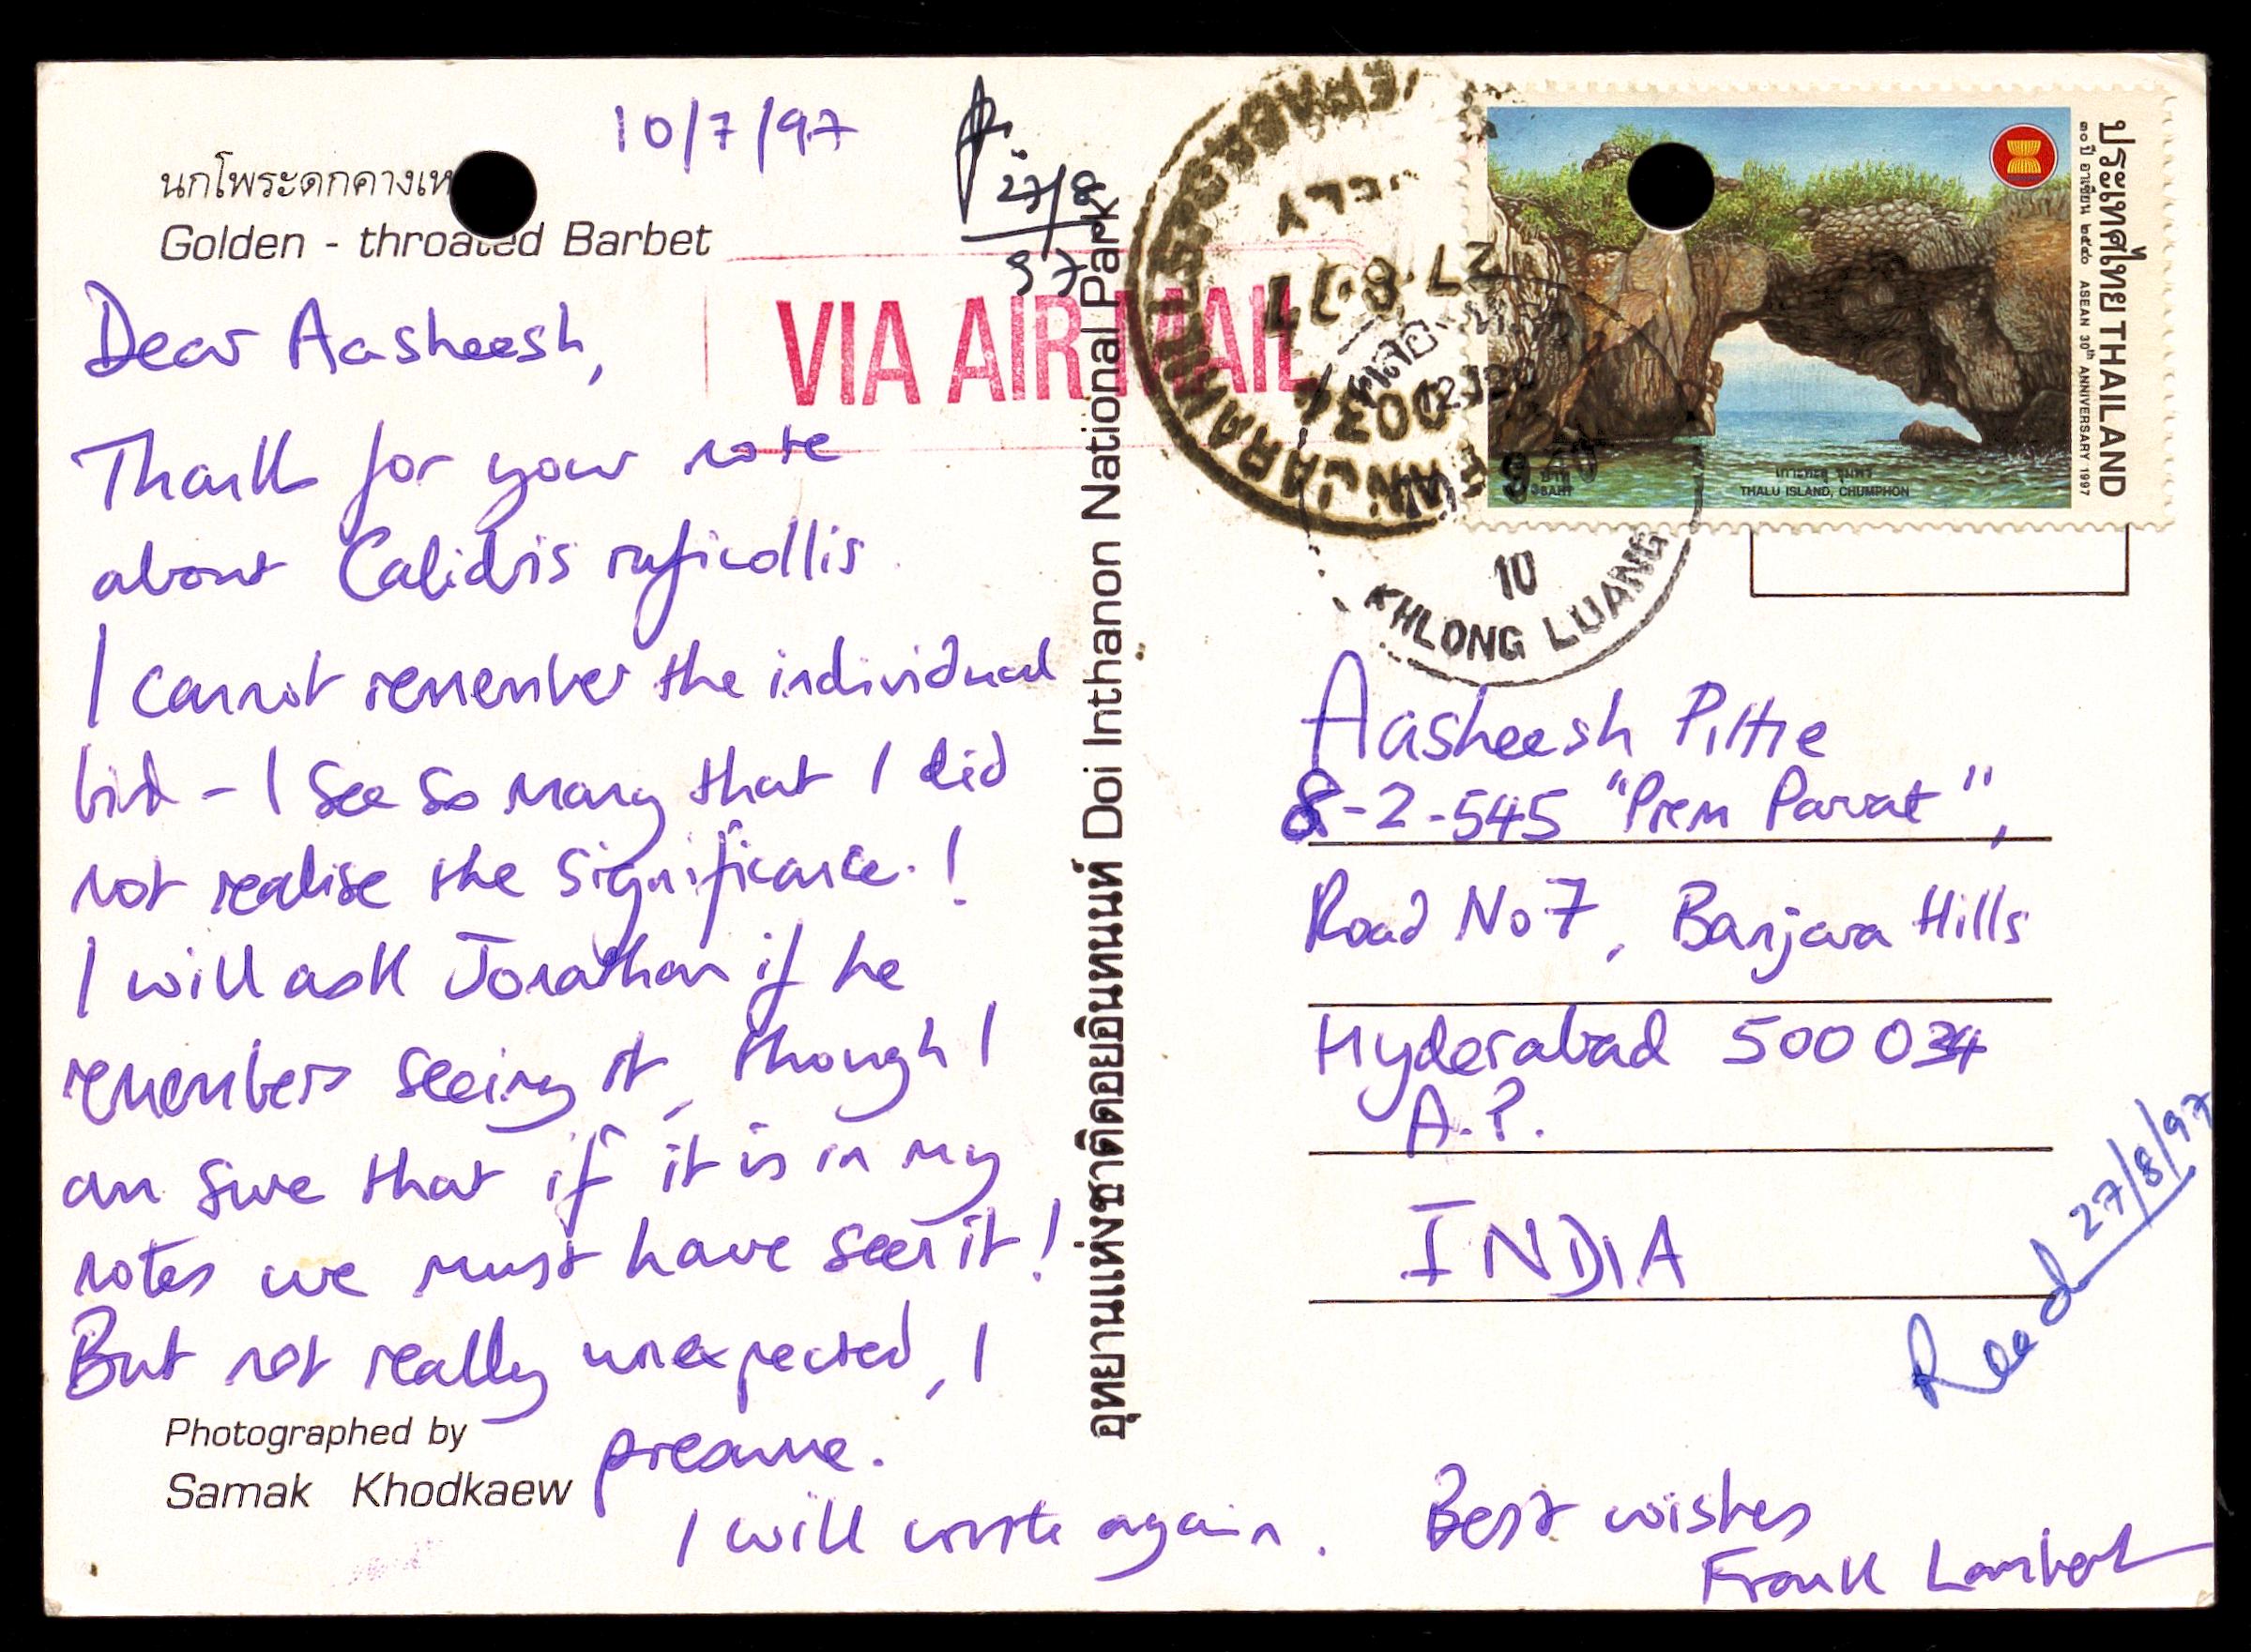 10/7/97
27/8
97
นกโพระดกคางเห
Golden - throated Barbet
VIA AIR MAIL
Dear Aasheesh,
Thank for your note
about Calidris ruficollis.
I cannot remember the individual
bird - I see so many that I did
not realise the significance.!
I will ask Jonathan if he
remembers seeing it, though I
am sure that if it is in my
notes we must have seen it!
But not really unexpected, I
presume.
I will write again.
Best wishes
Frank Lambert
Photographed by
Samak Khodkaew
อุทยานแห่งชาติดอยอินทนนท์ Doi Inthanon National Park
ประเทศไทย THAILAND
๓๐ ปี อาเซียน ๒๕๔๐ ASEAN 30th ANNIVERSARY 1997
เกาะทะลุ ชุมพร
THALU ISLAND, CHUMPHON
9 บาท
BAHT
BANJARAHILLS
27 8 97
10
KHLONG LUANG
Aasheesh Pittie
8-2-545 "Prem Parvat",
Road No 7, Banjara Hills
Hyderabad 500 034
A.P.
INDIA
Recd 27/8/97